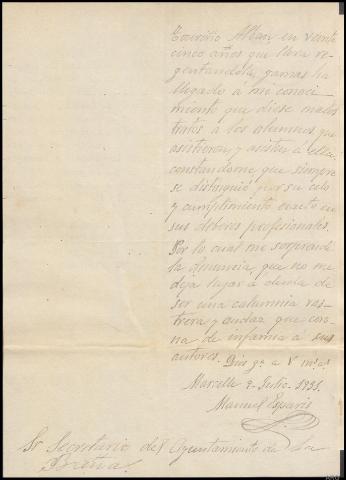 Toursiño Alban, en veinte
cinco años que lleva re-
gentandola, jamas ha
llegado á mi conoci-
miento que diese malos
tratos a los alumnos que
asistieron y asisten á ella
constandome que siempre
se distinguió por su celo
y cumplimiento exacto en
sus deberes profesionales.
Por lo cual me sorprende
la denuncia que no me
deja lugar á duda de
ser una calumnia ras-
trera y audaz que coro-
na de infamia á sus
autores. Dios gª a V mˢ aˢ
Marcelle 2 Julio 1931.
Manuel Esparis
Sr Secretario del Ayuntamiento de La
Baña.